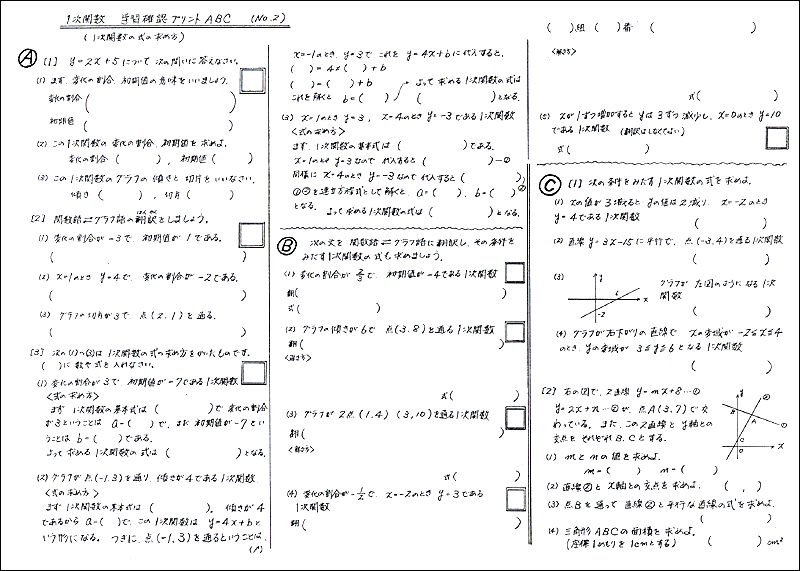 1次関数 学習確認プリントABC (No.2)
(1次関数の式の求め方)
( )組 ( )番 ( )
Ⓐ [1] y=2x+5について次の問いに答えなさい。
(1) まず、変化の割合、初期値の意味をいいましょう。
変化の割合 ( )
初期値 ( )
(2) この1次関数の変化の割合、初期値を求めよ。
変化の割合 ( ), 初期値 ( )
(3) この1次関数のグラフの傾きと切片をいいなさい。
傾き ( ), 切片 ( )
[2] 関数語⇄グラフ語の翻訳をしましょう。
ほんやく
(1) 変化の割合が-3で、初期値が1である。
( )
(2) x=1のとき y=4で、変化の割合が-2である。
( )
(3) グラフの切片が3で、点(2,1)を通る。
( )
[3] 次の(1)~(3)は1次関数の式の求め方をかいたものです。
( )に数や式を入れなさい。
(1) 変化の割合が3で、初期値が-7である1次関数
<式の求め方>
まず1次関数の基本式は( )で変化の割合
が3ということは a=( )で、また初期値が-7とい
うことは b=( )である。
よって求める1次関数の式は( )となる。
(2) グラフが点(-1,3)を通り、傾きが4である1次関数
<式の求め方>
まず1次関数の基本式は( )。傾きが4
であるから a=( )で、この1次関数は y=4x+bと
いう形になる。つぎに、点(-1,3)を通るということは、
x=-1のとき y=3で これを y=4x+bに代入すると、
( )=4×( )+b
( )=( )+b
よって求める1次関数の式は
これを解くと b=( )
( )となる。
(3) x=1のとき y=3, x=4のとき y=-3である1次関数
<式の求め方>
まず、1次関数の基本式は( )である。
x=1のとき y=3なので 代入すると( )—①
同様に x=4のとき y=-3なので 代入すると( )—②
①②を連立方程式として解くと、a=( ), b=( )
となる。よって求める1次関数の式は( )となる。
Ⓑ 次の文を関数語⇄グラフ語に翻訳し、その条件を
みたす1次関数の式も求めましょう。
(1) 変化の割合が2/3で、初期値が-4である1次関数
翻( )
式( )
(2) グラフの傾きが6で 点(3,8)を通る1次関数
翻( )
<解き方>
式( )
(3) グラフが2点(1,4) (3,10)を通る1次関数
翻( )
<解き方>
式( )
(4) 変化の割合が-1/2で、x=-2のとき y=3である
1次関数
翻( )
<解き方>
式( )
(5) xが1ずつ増加すると yは3ずつ減少し、x=0のとき y=10
である1次関数 (翻訳はしなくてよい)
式( )
Ⓒ [1] 次の条件をみたす1次関数の式を求めよ。
(1) xの値が3増えると yの値は2減り、x=-2のとき
y=4である1次関数
( )
(2) 直線y=3x-15に平行で、点(-3,4)を通る1次関数
( )
(3) グラフが左図のようになる1次
関数
( )
y
x
-2
(4) グラフが右下がりの直線で xの変域が -2≦x≦4
のとき、yの変域が 3≦y≦6となる1次関数
( )
[2] 右の図で、2直線 y=mx+8…①
y=2x+n…②が、点A(3,7)で交
わっている。また、この2直線とy軸との
交点をそれぞれB,Cとする。
y
②
B
A
①
O
x
C
(1) mとnの値を求めよ。
m=( ) n=( )
(2) 直線②とx軸との交点を求めよ。
( , )
(3) 点Bを通って直線②と平行な直線の式を求めよ。
( )
(4) 三角形ABCの面積を求めよ。
(座標1めもりを1cmとする) ( )cm²